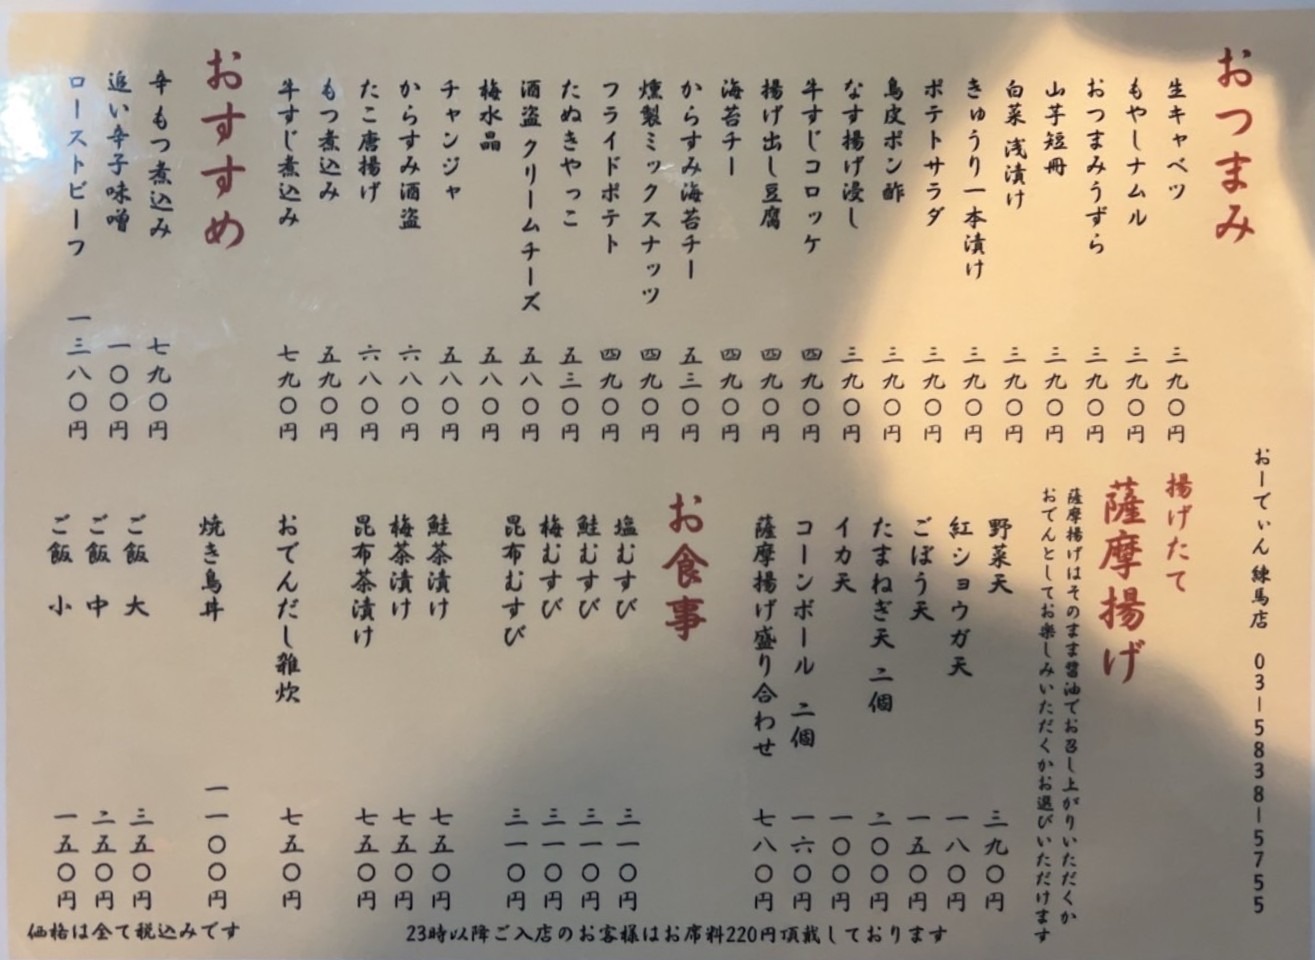 おつまみ
生キャベツ 三九〇円
もやしナムル 三九〇円
おつまみうずら 三九〇円
山芋短冊 三九〇円
白菜浅漬け 三九〇円
きゅうり一本漬け 三九〇円
ポテトサラダ 三九〇円
鳥皮ポン酢 三九〇円
なす揚げ浸し 三九〇円
牛すじコロッケ 四九〇円
揚げ出し豆腐 四九〇円
海苔チー 四九〇円
からすみ海苔チー 五三〇円
燻製ミックスナッツ 四九〇円
フライドポテト 四九〇円
たぬきやっこ 五三〇円
酒盗クリームチーズ 五八〇円
梅水晶 五八〇円
チャンジャ 五八〇円
からすみ酒盗 六八〇円
たこ唐揚げ 六八〇円
もつ煮込み 五九〇円
牛すじ煮込み 七九〇円
おすすめ
辛もつ煮込み 七九〇円
追い辛子味噌 一〇〇円
ローストビーフ 一三八〇円
おーでぃん練馬店 03-5838-5755
揚げたて
薩摩揚げ
薩摩揚げはそのまま醤油でお召し上がりいただくか
おでんとしてお楽しみいただくかお選びいただけます
野菜天 三九〇円
紅ショウガ天 一八〇円
ごぼう天 一五〇円
たまねぎ天 二個 二〇〇円
イカ天 一〇〇円
コーンボール 二個 一六〇円
薩摩揚げ盛り合わせ 七八〇円
お食事
塩むすび 三一〇円
鮭むすび 三一〇円
梅むすび 三一〇円
昆布むすび 三一〇円
鮭茶漬け 七五〇円
梅茶漬け 七五〇円
昆布茶漬け 七五〇円
おでんだし雑炊 七五〇円
焼き鳥丼 一一〇〇円
ご飯 大 三五〇円
ご飯 中 二五〇円
ご飯 小 一五〇円
23時以降ご入店のお客様はお席料220円頂戴しております
価格は全て税込みです